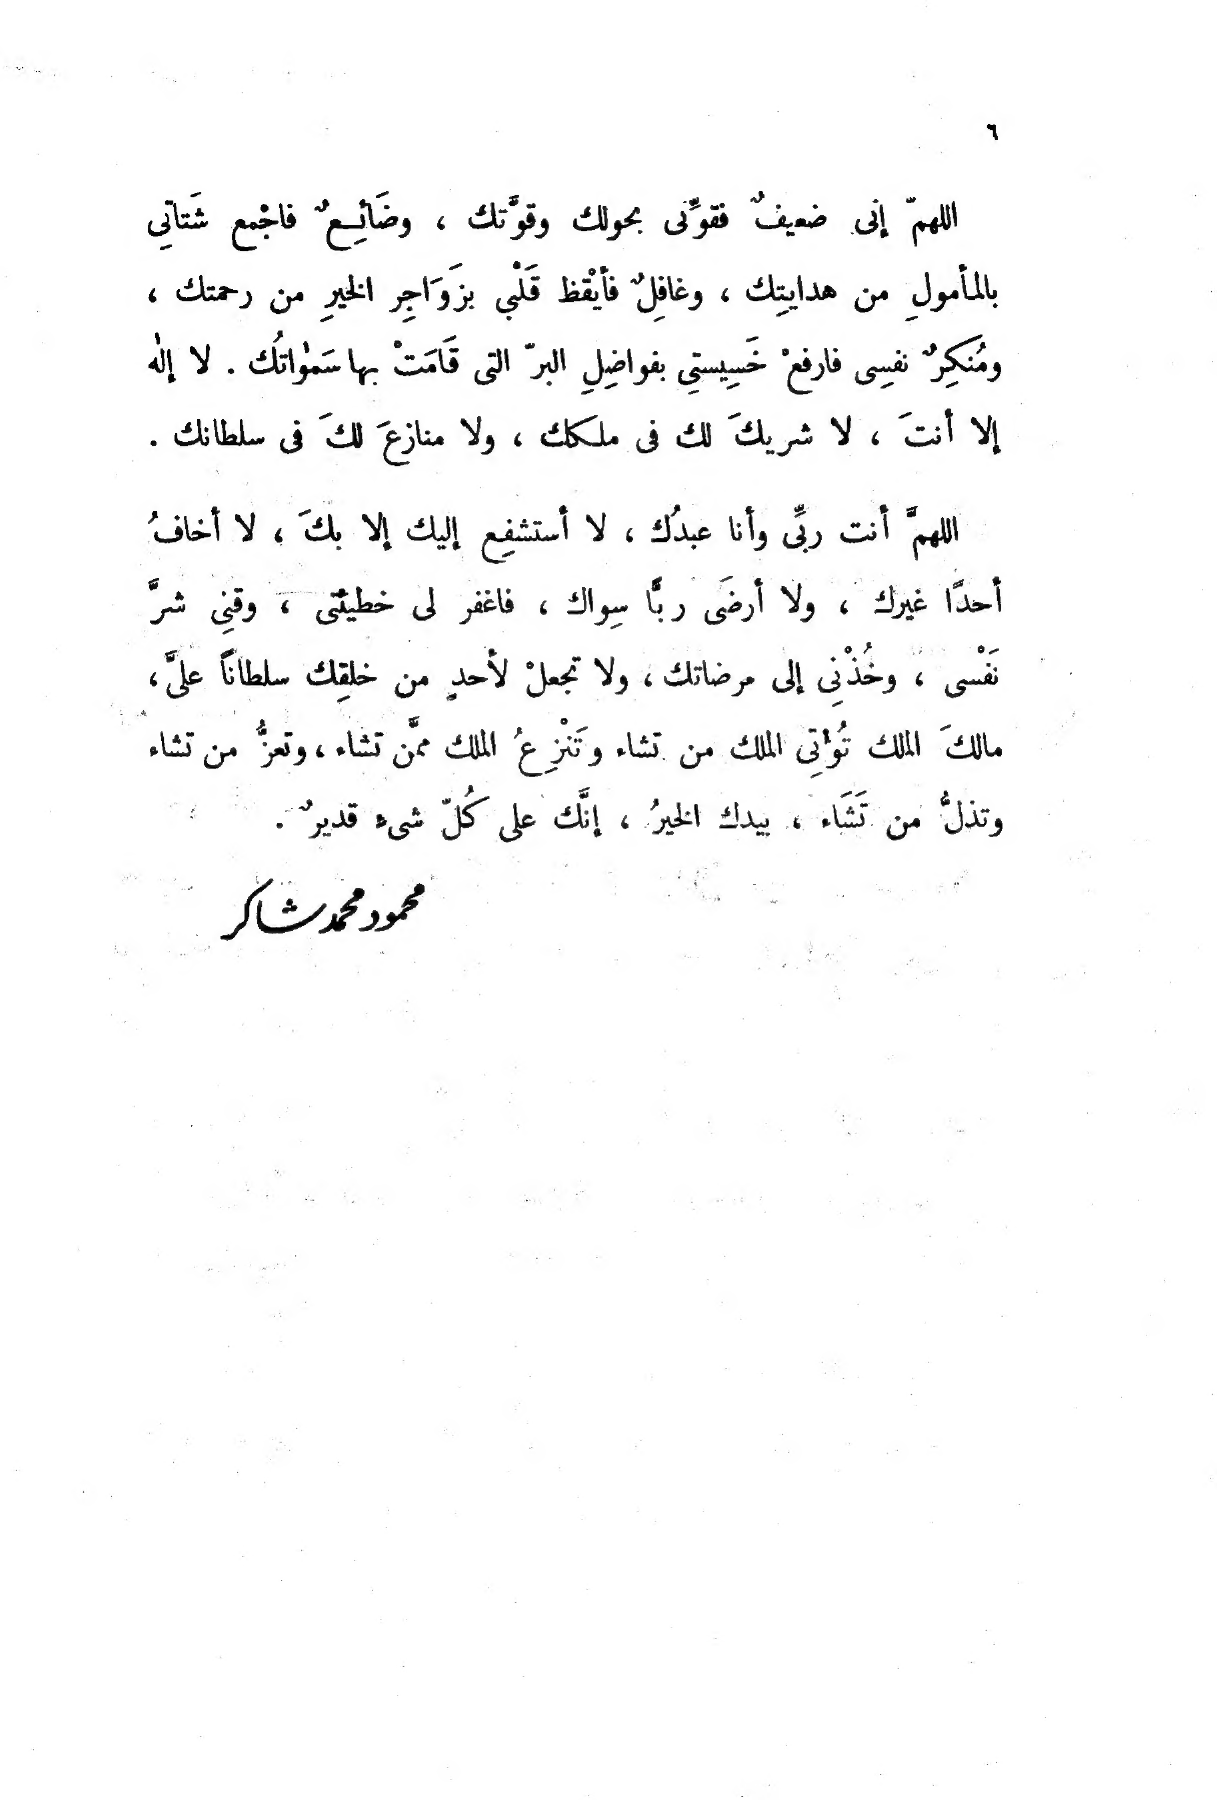 ٦
اللهمّ إنى ضعيفٌ فقوِّنى بحولك وقوَّتك ، وضَائِعٌ فاجْمع شَتاتِي
بالمأمولِ من هدايتِك ، وغافِلٌ فأيْقظ قَلْبي بزَوَاجِر الخيرِ من رحمتك ،
ومُنكِرٌ نفسِى فارفعْ خَسِيستِي بفواضِلِ البرّ التى قَامَتْ بها سَمٰواتُك . لا إلٰه
إلا أنتَ ، لا شريكَ لك فى ملكك ، ولا منازعَ لكَ فى سلطانك .
اللهمَّ أنت ربِّى وأنا عبدُك ، لا أستشفِع إليك إلا بكَ ، لا أخافُ
أحدًا غيرك ، ولا أرضَى ربًّا سِواك ، فاغفر لى خطيئتى ، وقنِى شرَّ
نَفْسى ، وخُذْنِي إلى مرضاتك ، ولا تجعلْ لأحدٍ من خلقِك سلطاناً علىَّ ،
مالكَ الملك تُؤتِي الملك من تشاء وتَنْزِعُ الملك ممَّن تشاء ، وتعزُّ من تشاء
وتذلُّ من تَشَاء ، بيدك الخيرُ ، إنَّك على كُلّ شىءٍ قديرٌ .
محمود محمد شاكر